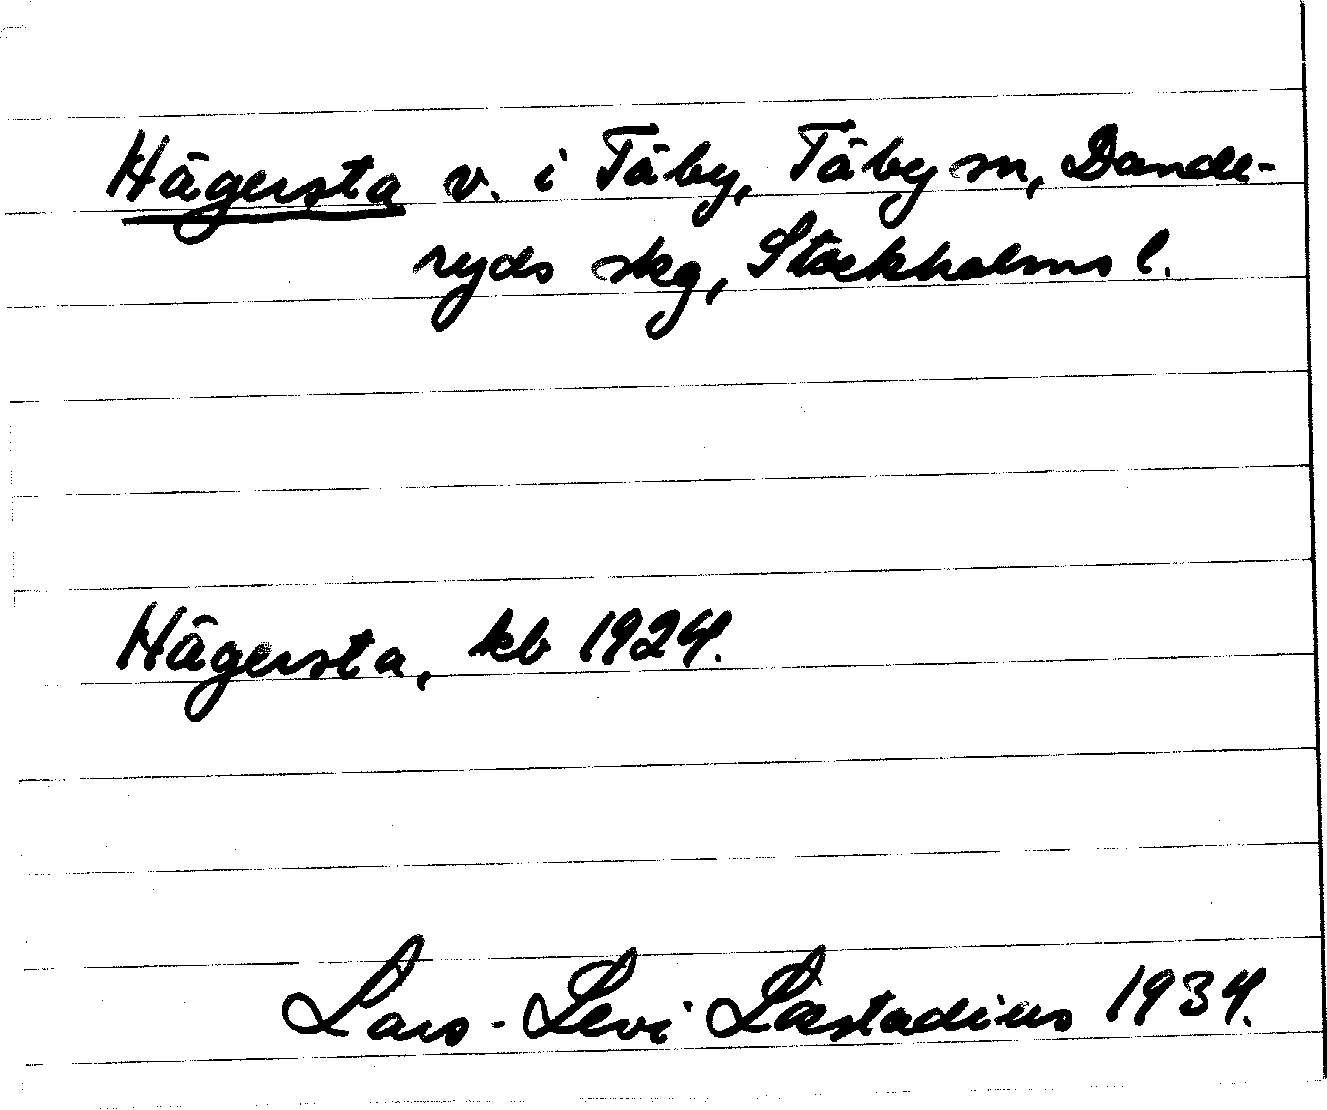 Hägersta v. i Täby, Täby sn, Dande-
ryds skg, Stockholms l.
Hägersta, kb 1924.
Lars-Levi Læstadius 1934.